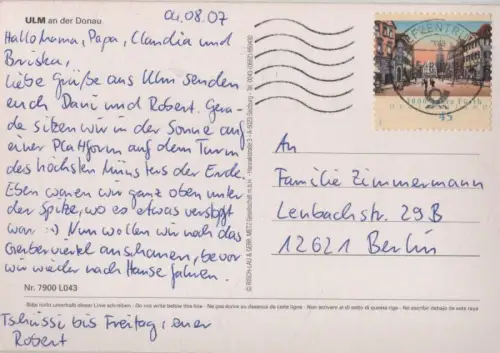 ULM an der Donau
04.08.07
Hallo Mama, Papa, Claudia und
Briska,
liebe Grüße aus Ulm senden
euch Dani und Robert. Gera-
de sitzen wir in der Sonne auf
einer Plattform auf dem Turm
des höchsten Münsters der Erde.
Eben waren wir ganz oben unter
der Spitze, wo es etwas verstopft
war :-) Nun wollen wir noch das
Gerberviertel anschauen, bevor
wir wieder nach Hause fahren.
Nr. 7900 L043
Bitte nicht unterhalb dieser Linie schreiben · Do not write below this line · Ne pas écrire au dessous de cette ligne · Non scrivere al di sotto di questa riga · No escribir debajo de esta raya
Tschüssi bis Freitag, euer
Robert
1000 Jahre Fürth
45
An
Familie Zimmermann
Lenbachstr. 29B
12621 Berlin